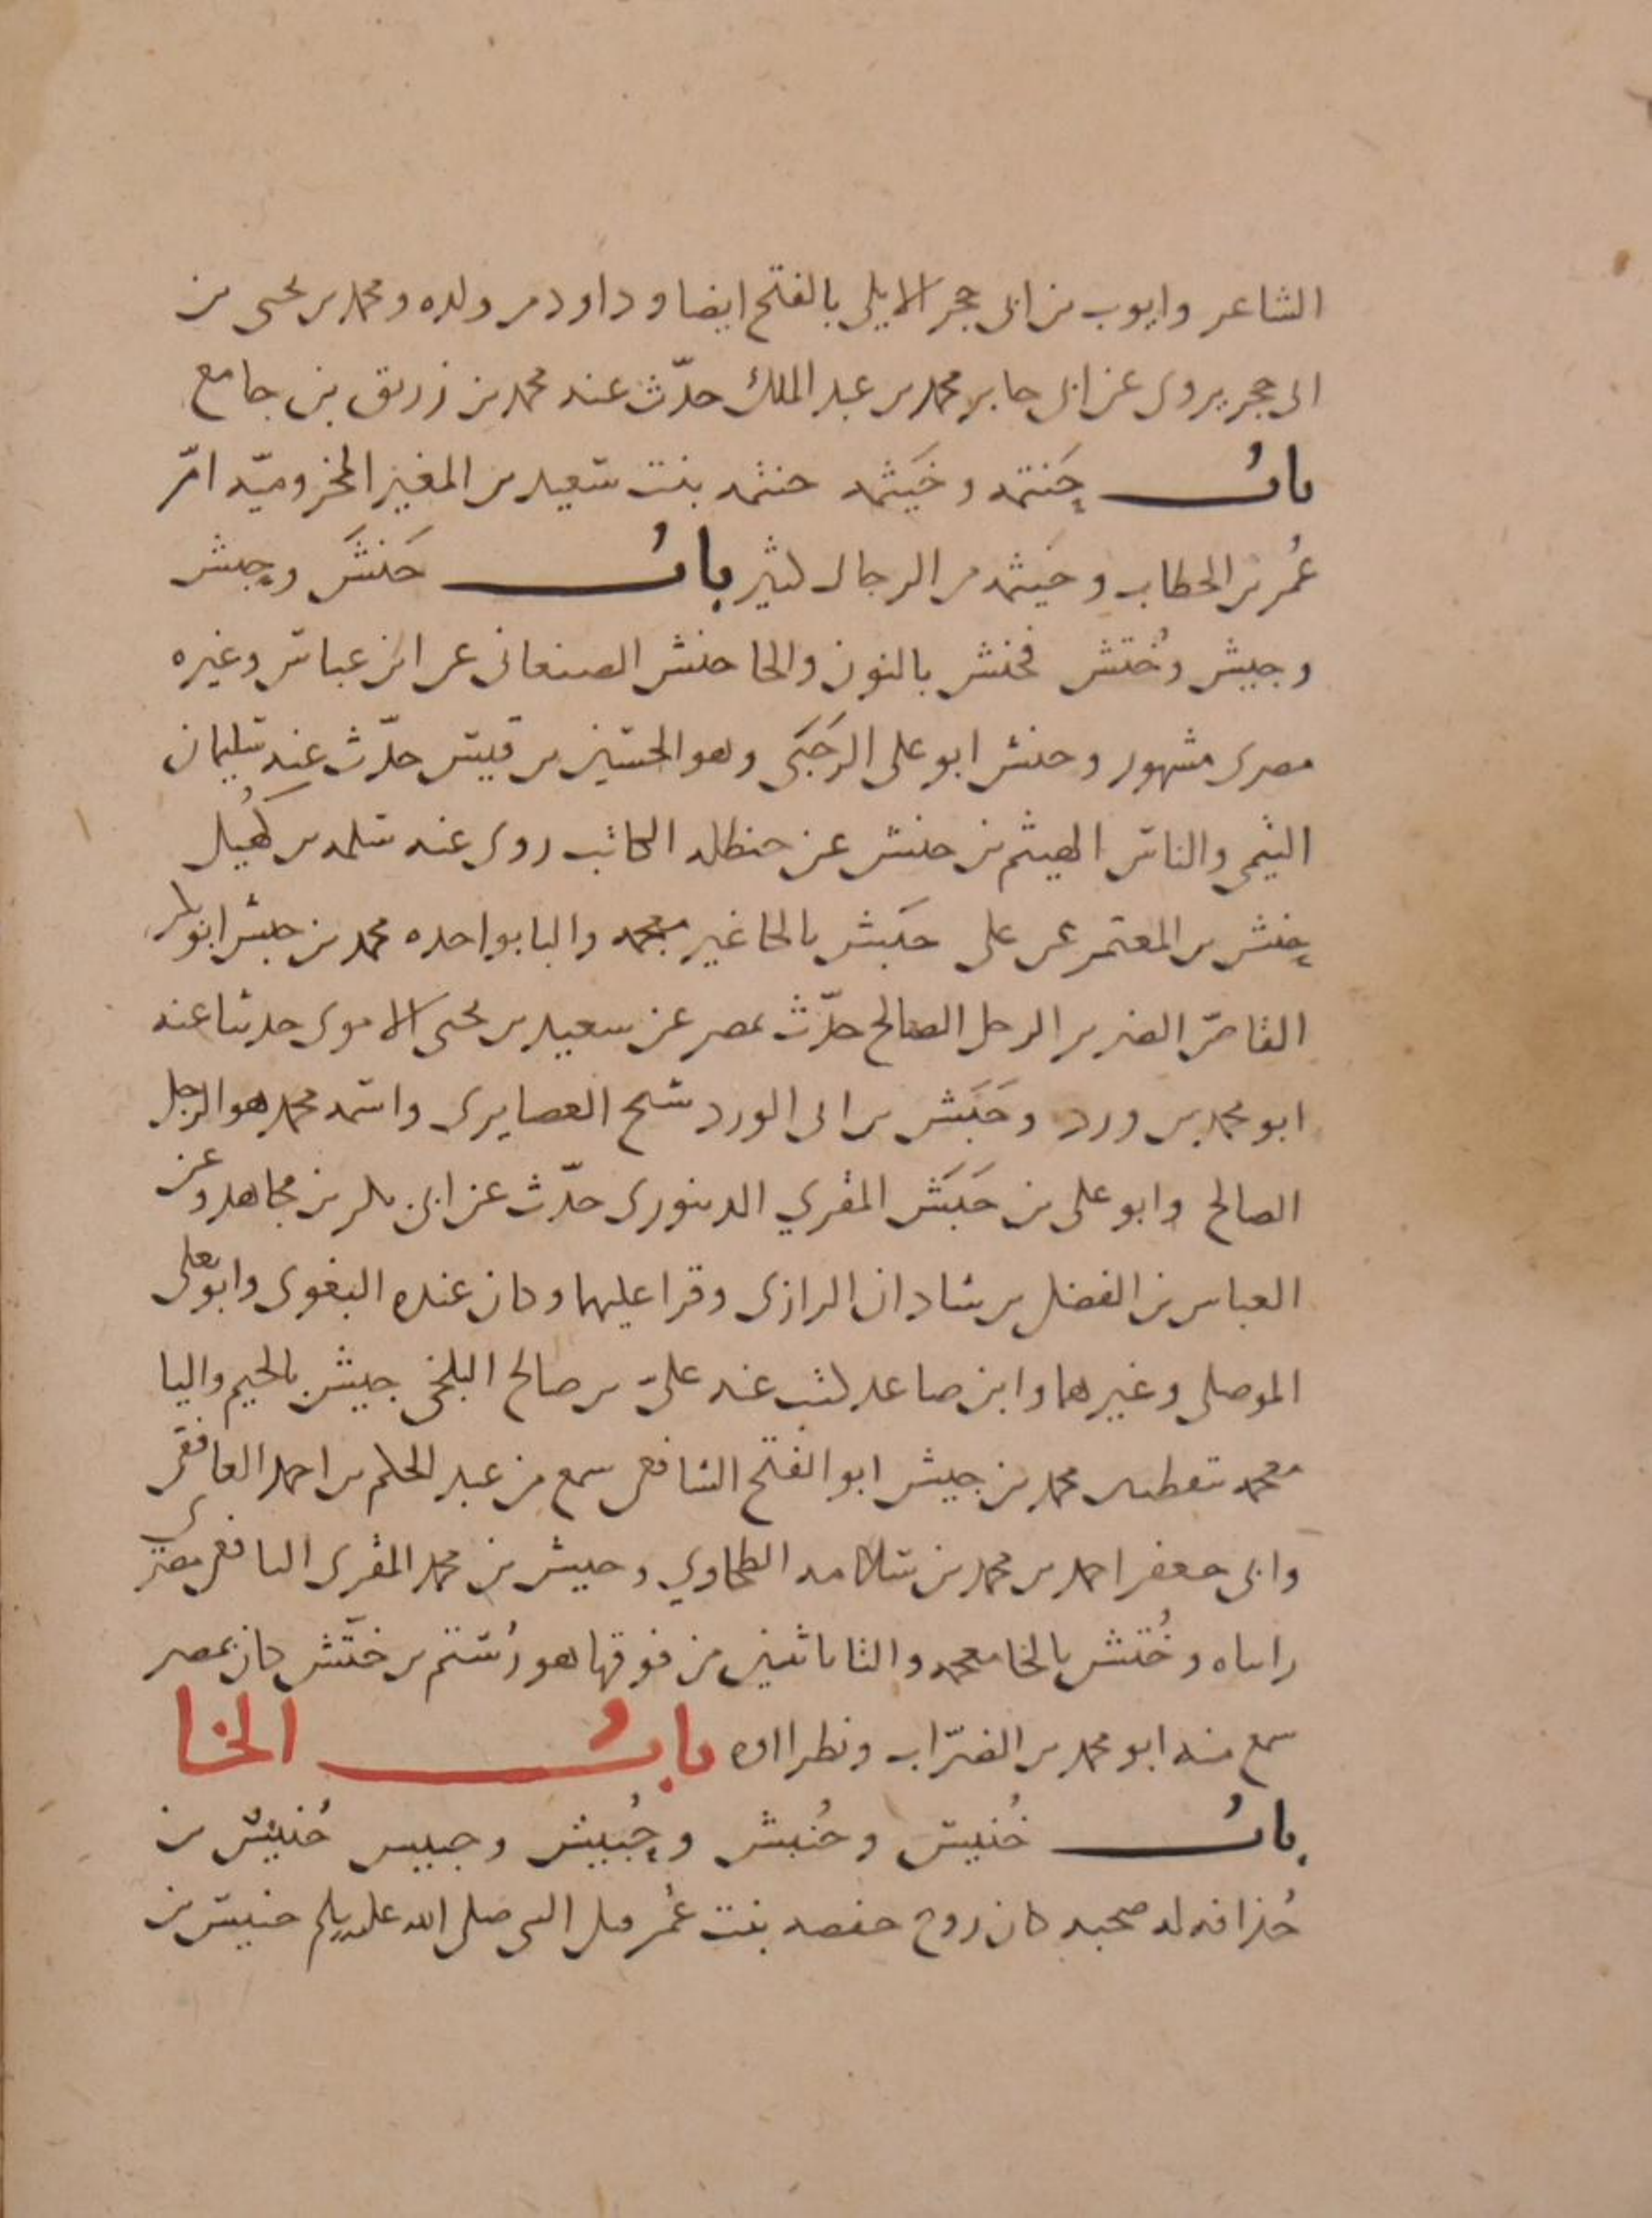 الشاعر وايوب بن ابى حجر الايلى بالفتح ايضا وداود من ولده ومحمد بن يحيى بن
ابى حجر يروى عن ابى جابر محمد بن عبد الملك حدّث عنه محمد بن زريق بن جامع
بابُ حَنتمه وخَيثمه حنتمه بنت سعيد بن المغيره المخزوميّه امّ
عُمر بن الخطاب وخيثمه من الرجال كثير بابُ حَنَشَ وحبش
وجيش وخُتش فحنش بالنون والحا حنش الصنعانى عن ابن عباس وغيره
مصرى مشهور وحنش ابو على الرَحَبَى وهو الحسين بن قيس حدّث عنه سليمان
التيمى والناس الهيثم بن حنش عن حنظله الكاتب روى عنه سلمه بن كُهَيل
حنش بن المعتمر عن على حبَش بالحا غير معجمه والبا بواحده محمد بن حبش ابو بكر
القاصّ الضرير الرجل الصالح حدّث بمصر عن سعيد بن يحيى الاموى حدثنا عنه
ابو محمد بن ورد وحَبَش بن ابى الورد شيخ العصايرى واسمه محمد هو الرجل
الصالح وابو على بن حَبَش المقري الدينورى حدّث عن ابى بكر بن مجاهد وعن
العباس بن الفضل بن شادان الرازى وقرا عليهما وكان عنده البغوى وابو يعلى
الموصلى وغيرهما وابن صاعد كتب عنه علىّ بن صالح البلخى جيش بالجيم واليا
معجمه بنقطتين محمد بن جيش ابو الفتح الشافعى سمع من عبد الحكم بن احمد الصدفى
وابى جعفر احمد بن محمد بن سلامه الطحاوي وجيش بن محمد المقرى النافعى مصرى
راساه وخُتّش بالخا معجمه والتا باثنين من فوقها هو رُستم بن ختّش كان بمصر
سمع منه ابو محمد بن الضرّاب ونظراوه بابُ الخا
بابُ خُنَيس وحُبيش وحُبيش وجبيس خُنَيس بن
حُذافه له صحبه كان زوج حفصه بنت عُمر قبل النبى صلى الله عليه وسلم خنيس بن